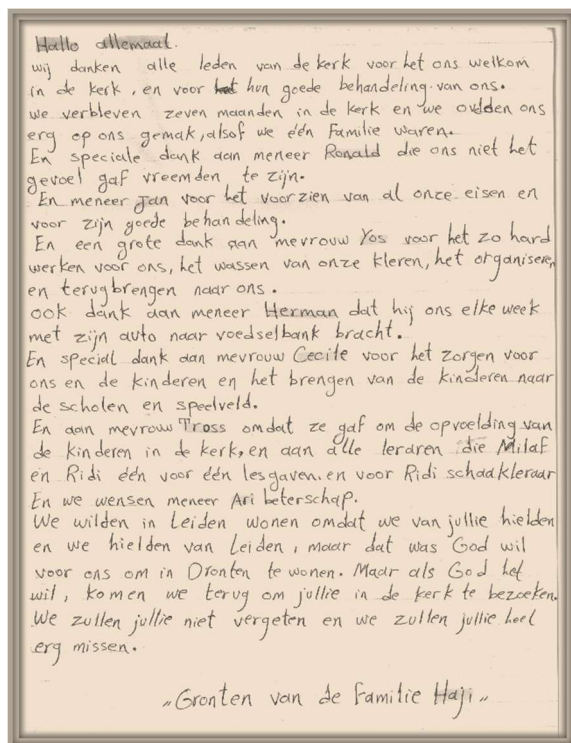 Hallo allemaal.
wij danken alle leden van de kerk voor het ons welkom
in de kerk, en voor het hun goede behandeling van ons.
we verbleven zeven maanden in de kerk en we ons
erg op ons gemak, alsof we één Familie waren.
En speciale dank aan meneer Ronald die ons niet het
gevoel gaf vreemden te zijn.
En meneer Jan voor het voorzien van al onze eisen en
voor zijn goede behandeling.
En een grote dank aan mevrouw Yos voor het zo hard
werken voor ons, het wassen van onze kleren, het organiseren
en terugbrengen naar ons.
ook dank aan meneer Herman dat hij ons elke week
met zijn auto naar voedselbank bracht.
En special dank aan mevrouw Cecile voor het zorgen voor
ons en de kinderen en het brengen van de kinderen naar
de scholen en speelveld.
En aan mevrouw Tross omdat ze gaf om de opvoelding van
de kinderen in de kerk, en aan alle leraren die Milaf
en Ridi één voor één lesgaven. en voor Ridi schaakleraar
En we wensen meneer Ari beterschap.
We wilden in Leiden wonen omdat we van jullie hielden
en we hielden van Leiden, maar dat was God wil
voor ons om in Dronten te wonen. Maar als God het
wil, komen we terug om jullie in de kerk te bezoeken.
We zullen jullie niet vergeten en we zullen jullie heel
erg missen.
"Gronten van de Familie Haji"